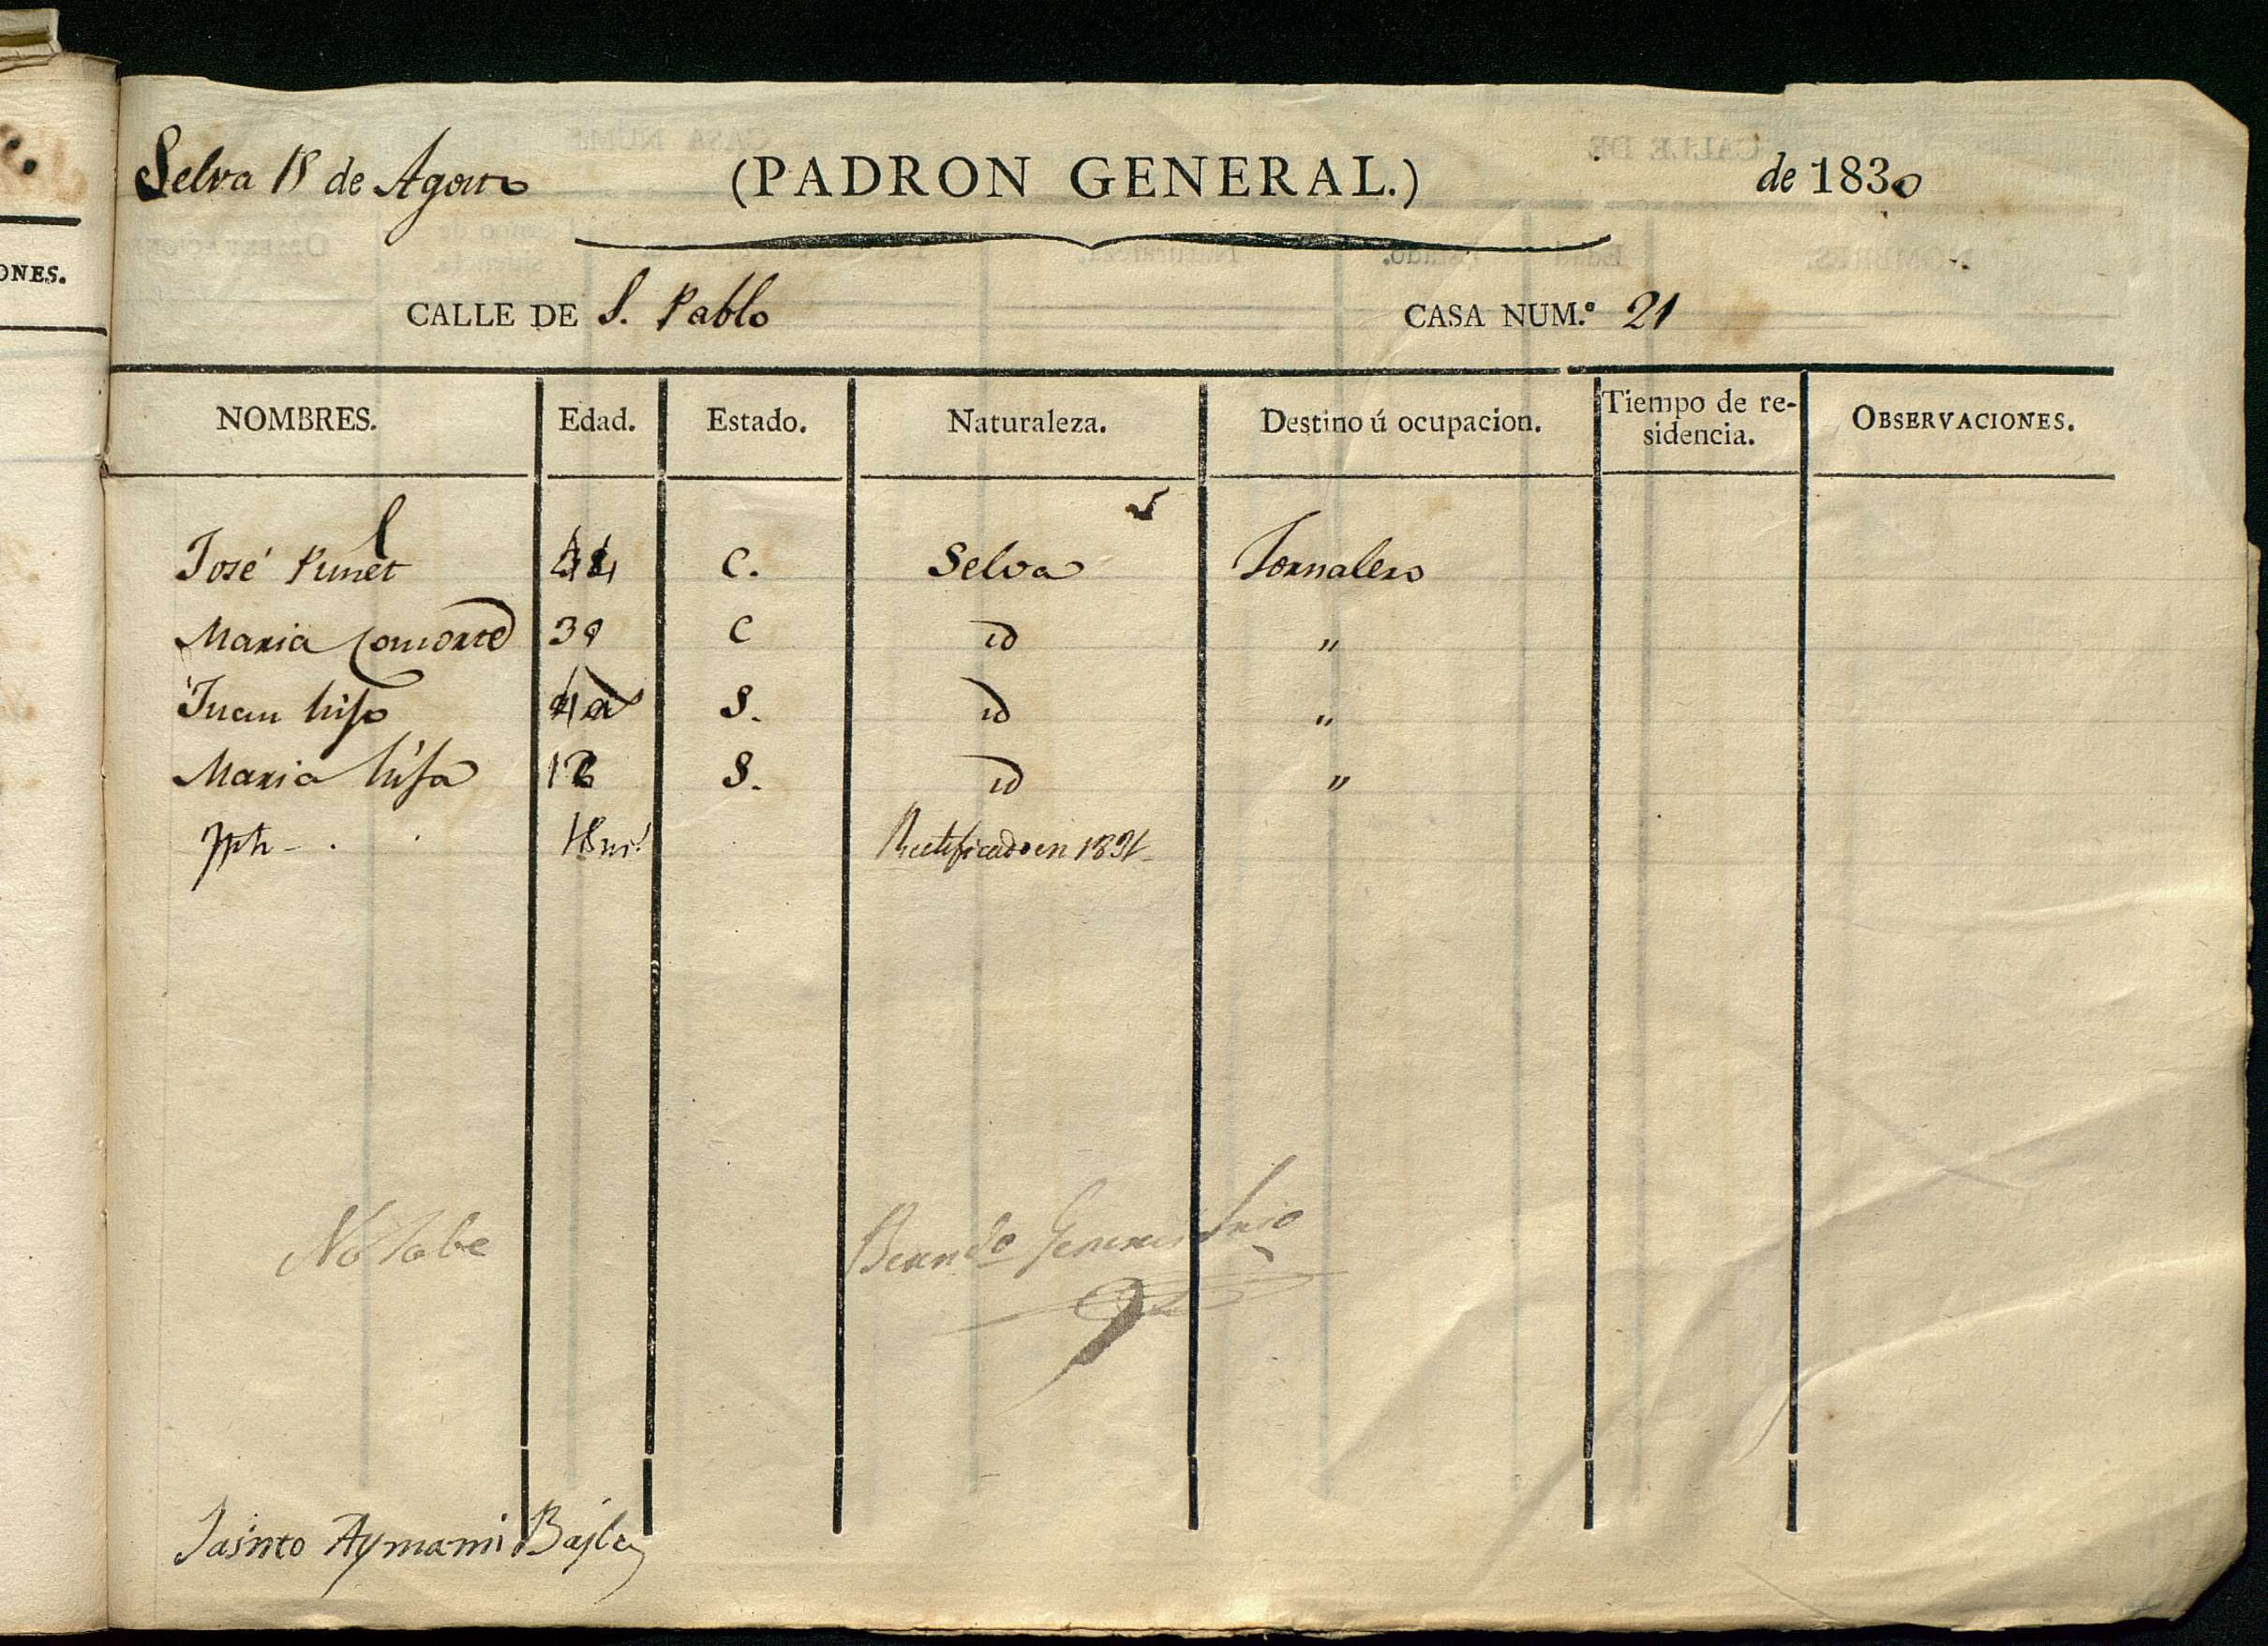 ONES.
Selva 18 de Agosto (PADRON GENERAL.) de 1830
CALLE DE S. Pablo CASA NUM.º 21
NOMBRES. Edad. Estado. Naturaleza. Destino ú ocupacion. Tiempo de re- OBSERVACIONES.
sidencia.
José Punet C. Selva Jornalero
Maria Consorte 39 C id "
Juan hijo S. id "
Maria hija S. id "
Jph - . Rectificado en 1831
No sabe
Jasinto Aymami Bayle